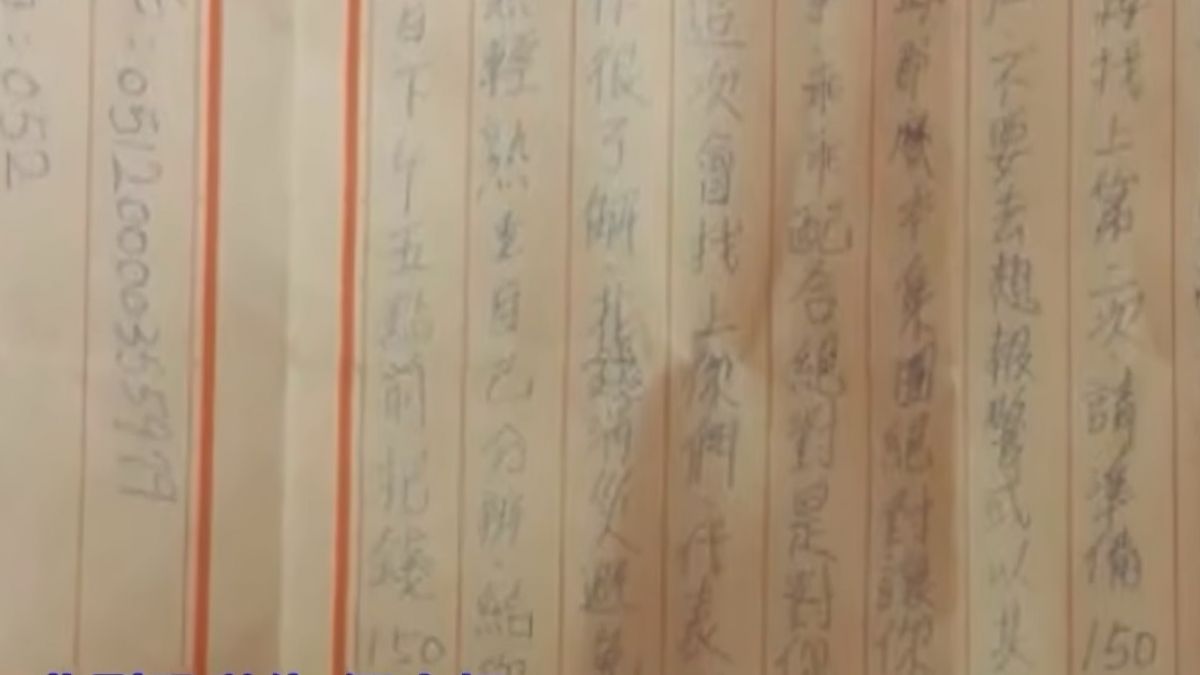 再找上第二次.請準備150
不要去想報警或以其
麼本集團絕對讓你
乖乖配合絕對是對你
這次會找上你們.代表
很了解.花錢消災避免
輕孰重自己分辨.
日下午五點前把錢150
:0512000355979
:052